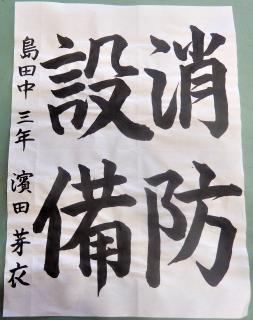 消防
設備
島田中 三年 濱田 芽衣